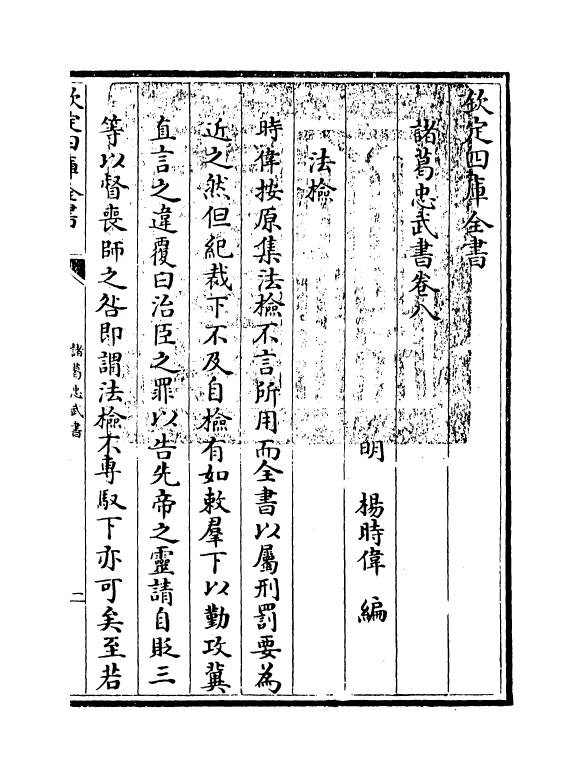 欽定四庫全書
諸葛忠武書卷八
明 楊時偉 編
法檢
時偉按原集法檢不言所用而全書以屬刑罰要為
近之然但紀裁下不及自檢有如敕羣下以勤攻冀
直言之違覆曰治臣之罪以告先帝之靈請自貶三
等以督喪師之咎即謂法檢不專馭下亦可矣至若
欽定四庫全書
諸葛忠武書
二